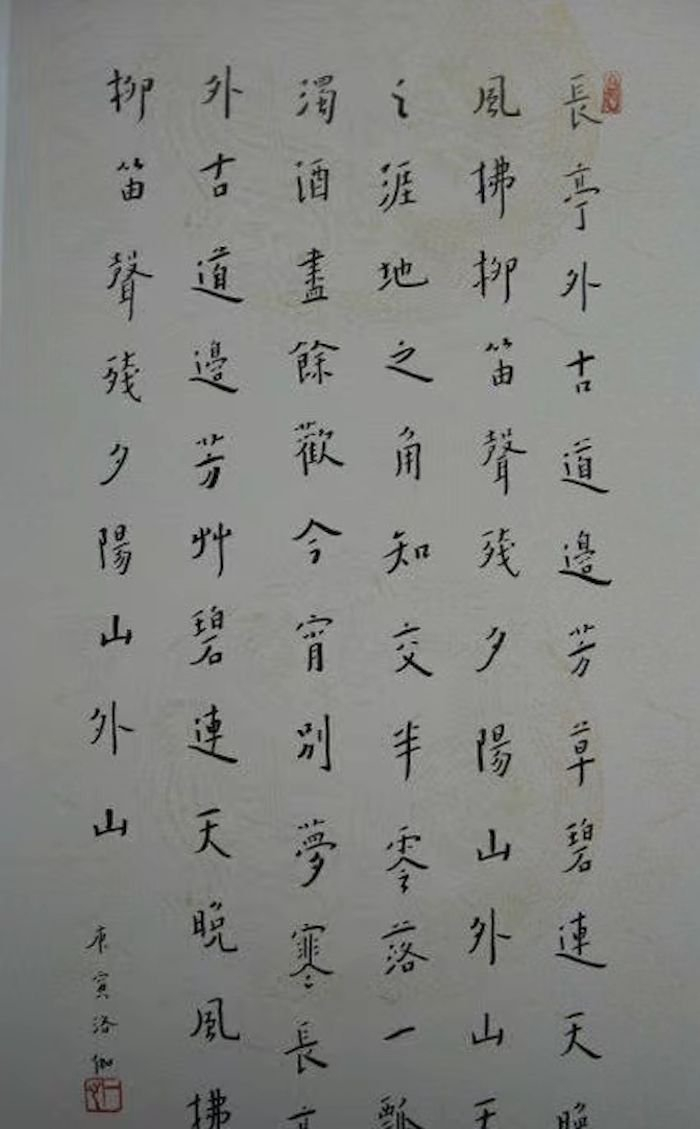 長亭外古道邊芳草碧連天晚
風拂柳笛聲殘夕陽山外山天
之涯地之角知交半零落一瓢
濁酒盡餘歡今宵別夢寒長亭
外古道邊芳艸碧連天晚風拂
柳笛聲殘夕陽山外山
庚寅洛伽